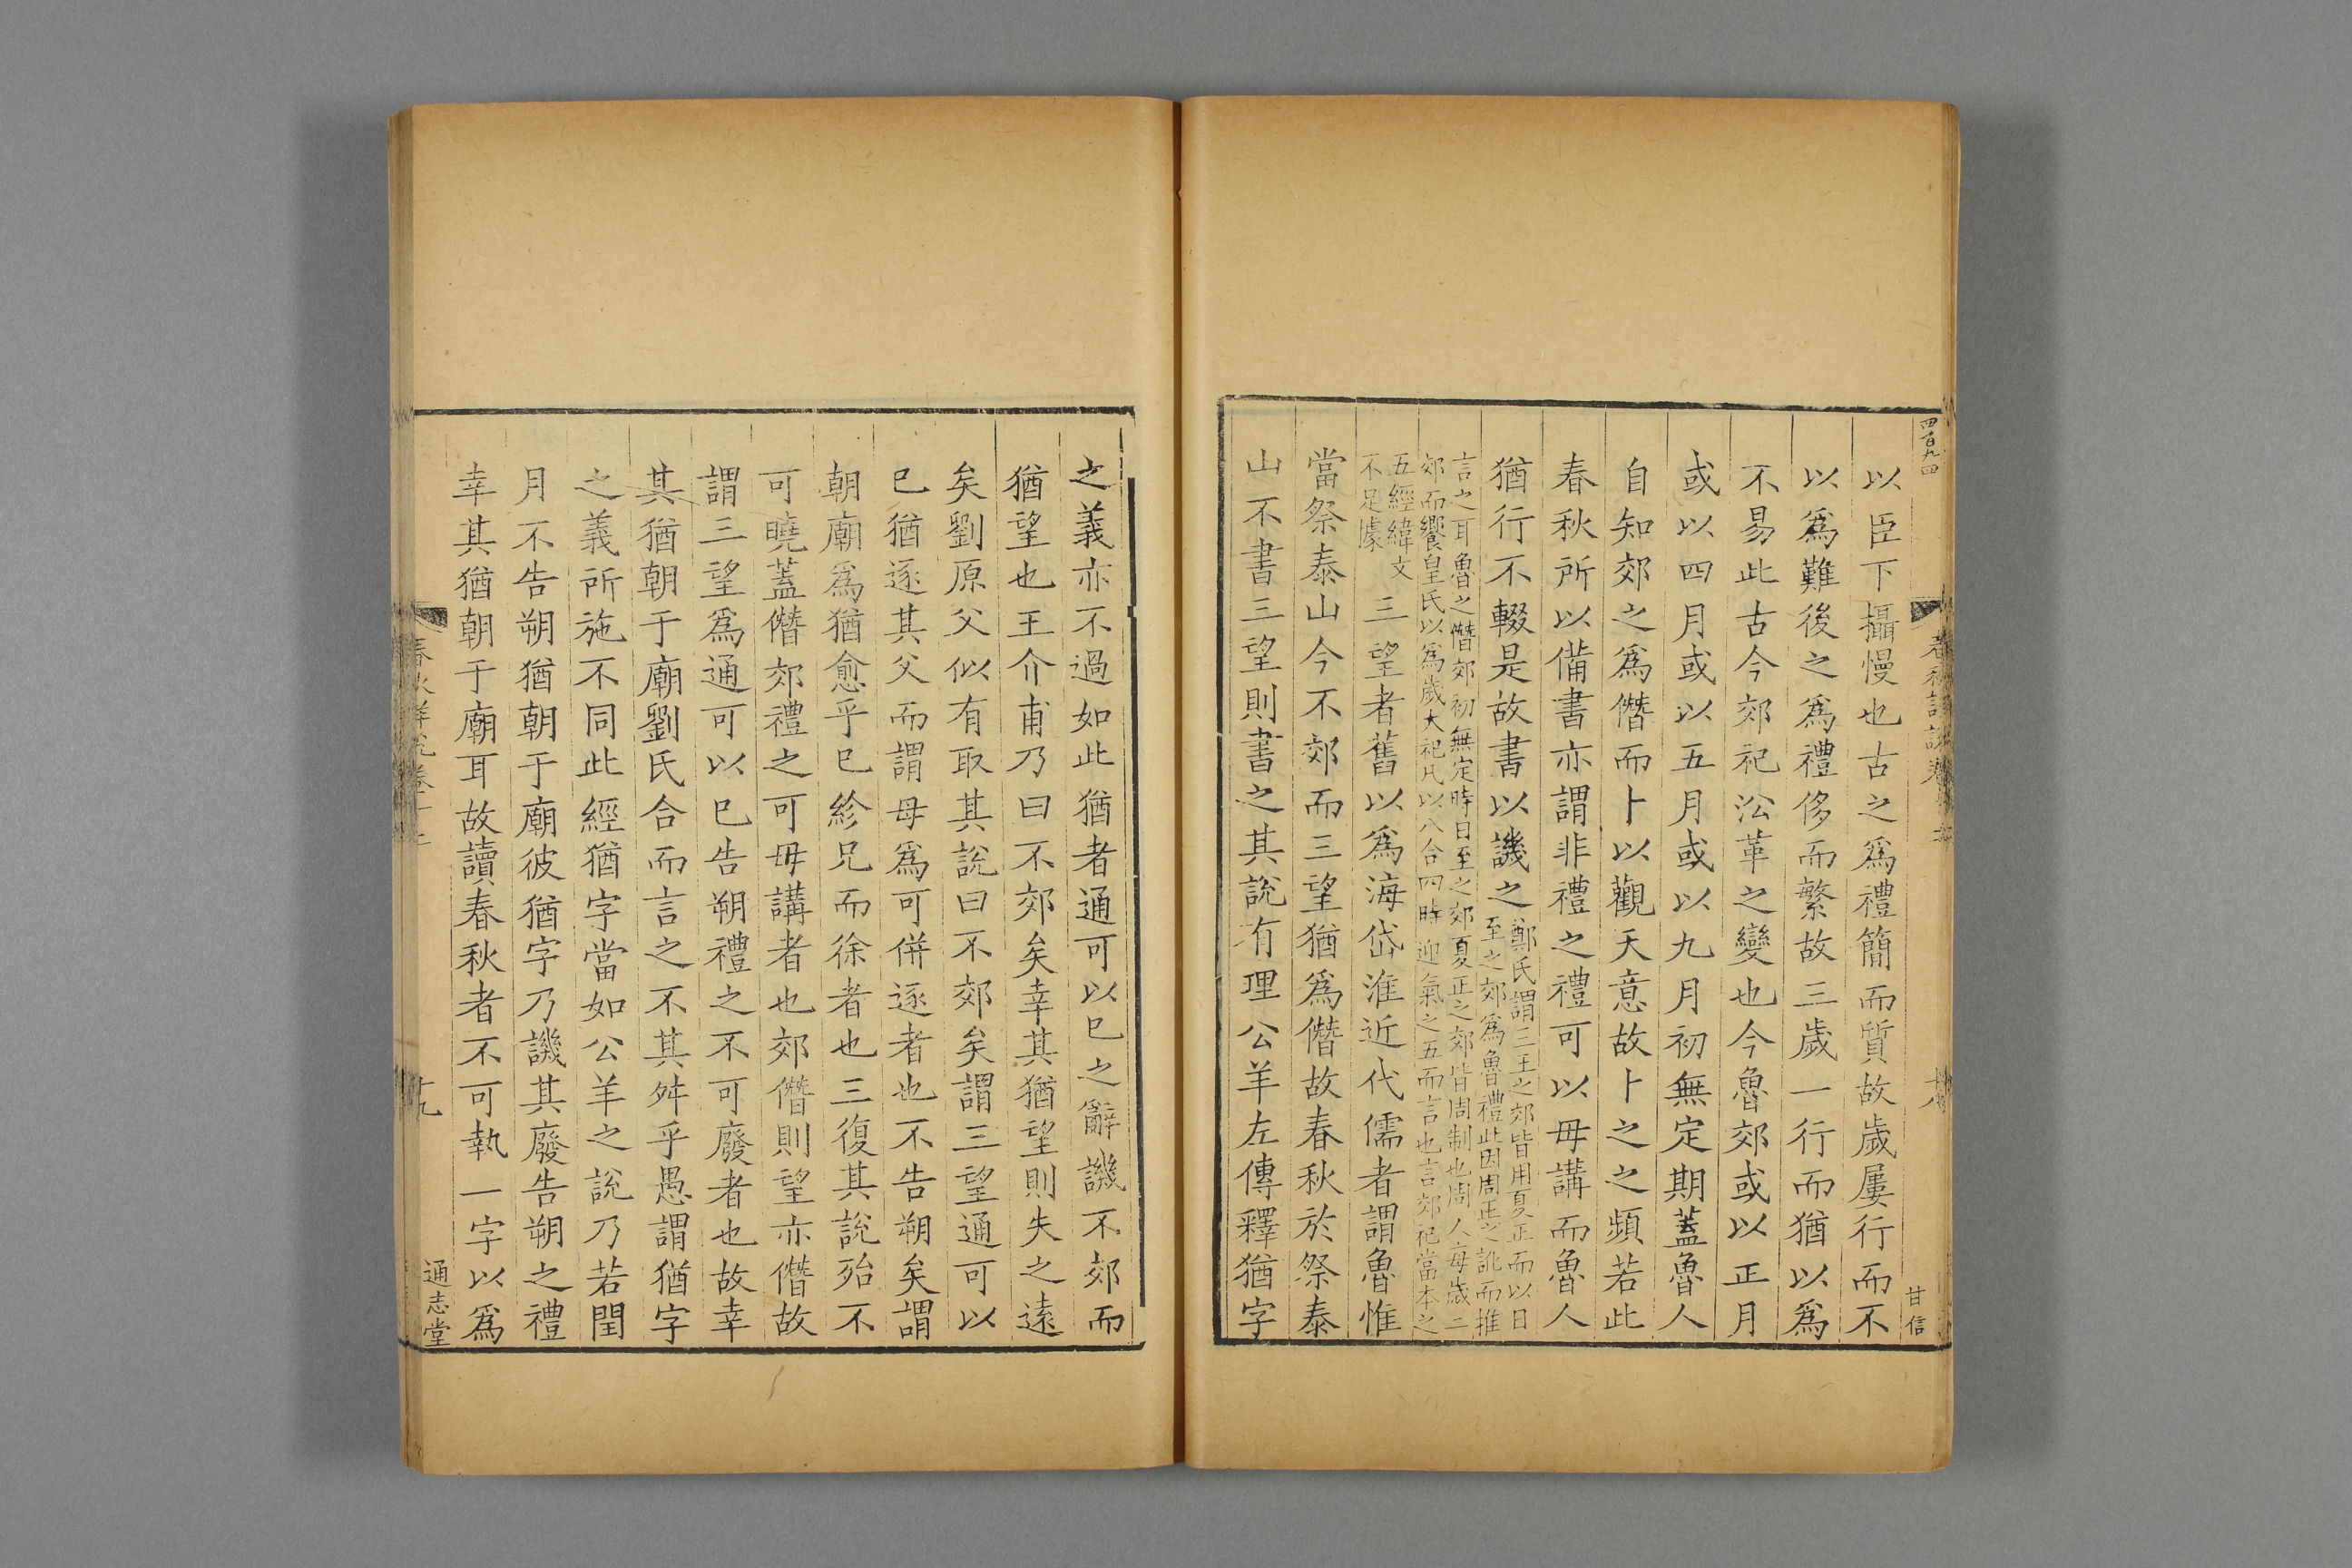 四百九四
甘信
以臣下攝慢也古之爲禮簡而質故歲屢行而不
以爲難後之爲禮侈而繁故三歲一行而猶以爲
不易此古今郊祀㳂革之變也今魯郊或以正月
或以四月或以五月或以九月初無定期蓋魯人
自知郊之爲僭而卜以觀天意故卜之之頻若此
春秋所以備書亦謂非禮之禮可以毋講而魯人
猶行不輟是故書以譏之鄭氏謂三王之郊皆用夏正而以日
至之郊爲魯禮此因周正之訛而推
言之耳魯之僭郊初無定時日至之郊夏正之郊皆周制也周人每歲二
郊而饗皇氏以爲歲大祀凡以八合四時迎氣之五而言也言郊祀當本之
五經緯文
不足據
三望者舊以爲海岱淮近代儒者謂魯惟
當祭泰山今不郊而三望猶爲僭故春秋於祭泰
山不書三望則書之其說有理公羊左傳釋猶字
之義亦不過如此猶者通可以已之辭譏不郊而
猶望也王介甫乃曰不郊矣幸其猶望則失之遠
矣劉原父似有取其說曰不郊矣謂三望通可以
已猶逐其父而謂母爲可併逐者也不告朔矣謂
朝廟爲猶愈乎已紾兄而徐者也三復其說殆不
可曉蓋僭郊禮之可毋講者也郊僭則望亦僭故
謂三望爲通可以已告朔禮之不可廢者也故幸
其猶朝于廟劉氏合而言之不其舛乎愚謂猶字
之義所施不同此經猶字當如公羊之說乃若閏
月不告朔猶朝于廟彼猶字乃譏其廢告朔之禮
幸其猶朝于廟耳故讀春秋者不可執一字以爲
十九
通志堂